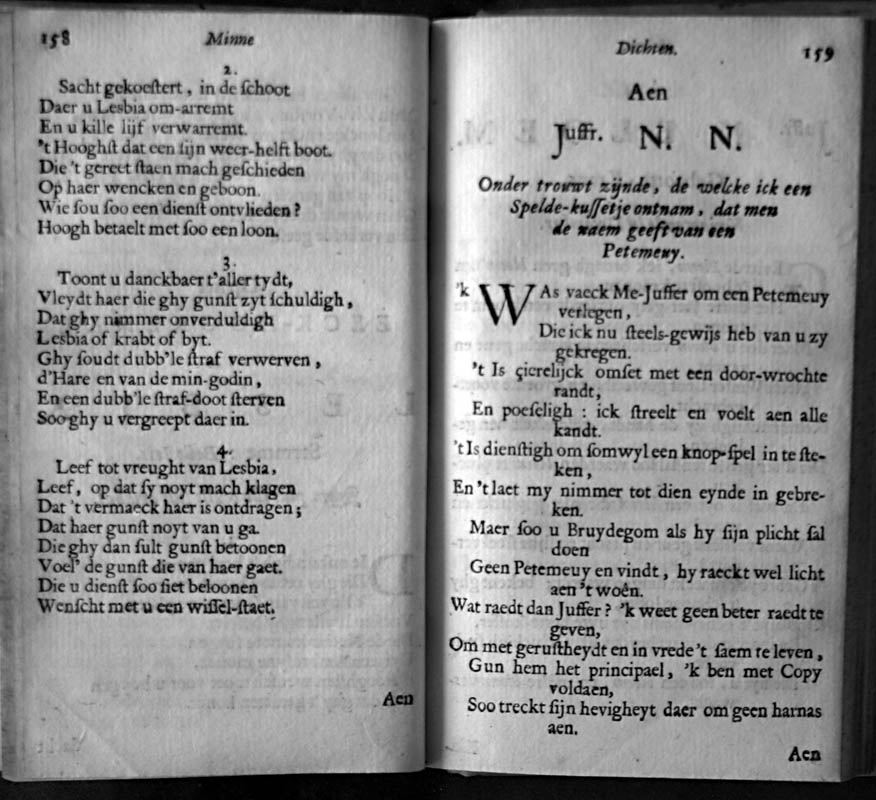 158 Minne
2.
Sacht gekoeſtert, in de ſchoot
Daer u Lesbia om-arremt
En u kille lijf verwarremt.
't Hooghſt dat een ſijn weer-helft boot.
Die 't gereet ſtaen mach geſchieden
Op haer wencken en geboon.
Wie ſou ſoo een dienſt ontvlieden?
Hoogh betaelt met ſoo een loon.
3.
Toont u danckbaer t'aller tydt,
Vleydt haer die ghy gunſt zyt ſchuldigh,
Dat ghy nimmer onverduldigh
Lesbia of krabt of byt.
Ghy ſoudt dubb'le ſtraf verwerven,
d'Hare en van de min-godin,
En een dubb'le ſtraf-doot ſterven
Soo ghy u vergreept daer in.
4.
Leef tot vreught van Lesbia,
Leef, op dat ſy noyt mach klagen
Dat 't vermaeck haer is ontdragen;
Dat haer gunſt noyt van u ga.
Die ghy dan ſult gunſt betoonen
Voel' de gunſt die van haer gaet.
Die u dienſt ſoo ſiet beloonen
Wenſcht met u een wiſſel-ſtaet.
Aen
Dichten. 159
Aen
Juffr. N. N.
Onder trouwt zijnde, de welcke ick een
Spelde-kuſſetje ontnam, dat men
de naem geeft van een
Petemeuy.
'k WAs vaeck Me-Juffer om een Petemeuy
verlegen,
Die ick nu ſteels-gewijs heb van u zy
gekregen.
't Is çierelijck omſet met een door-wrochte
randt,
En poeſeligh : ick ſtreelt en voelt aen alle
kandt.
't Is dienſtigh om ſomwyl een knop-ſpel in te ſte-
ken,
En 't laet my nimmer tot dien eynde in gebre-
ken.
Maer ſoo u Bruydegom als hy ſijn plicht ſal
doen
Geen Petemeuy en vindt, hy raeckt wel licht
aen 't woên.
Wat raedt dan Juffer? 'k weet geen beter raedt te
geven,
Om met geruſtheydt en in vrede 't ſaem te leven,
Gun hem het principael, 'k ben met Copy
voldaen,
Soo treckt ſijn hevigheyt daer om geen harnas
aen.
Aen